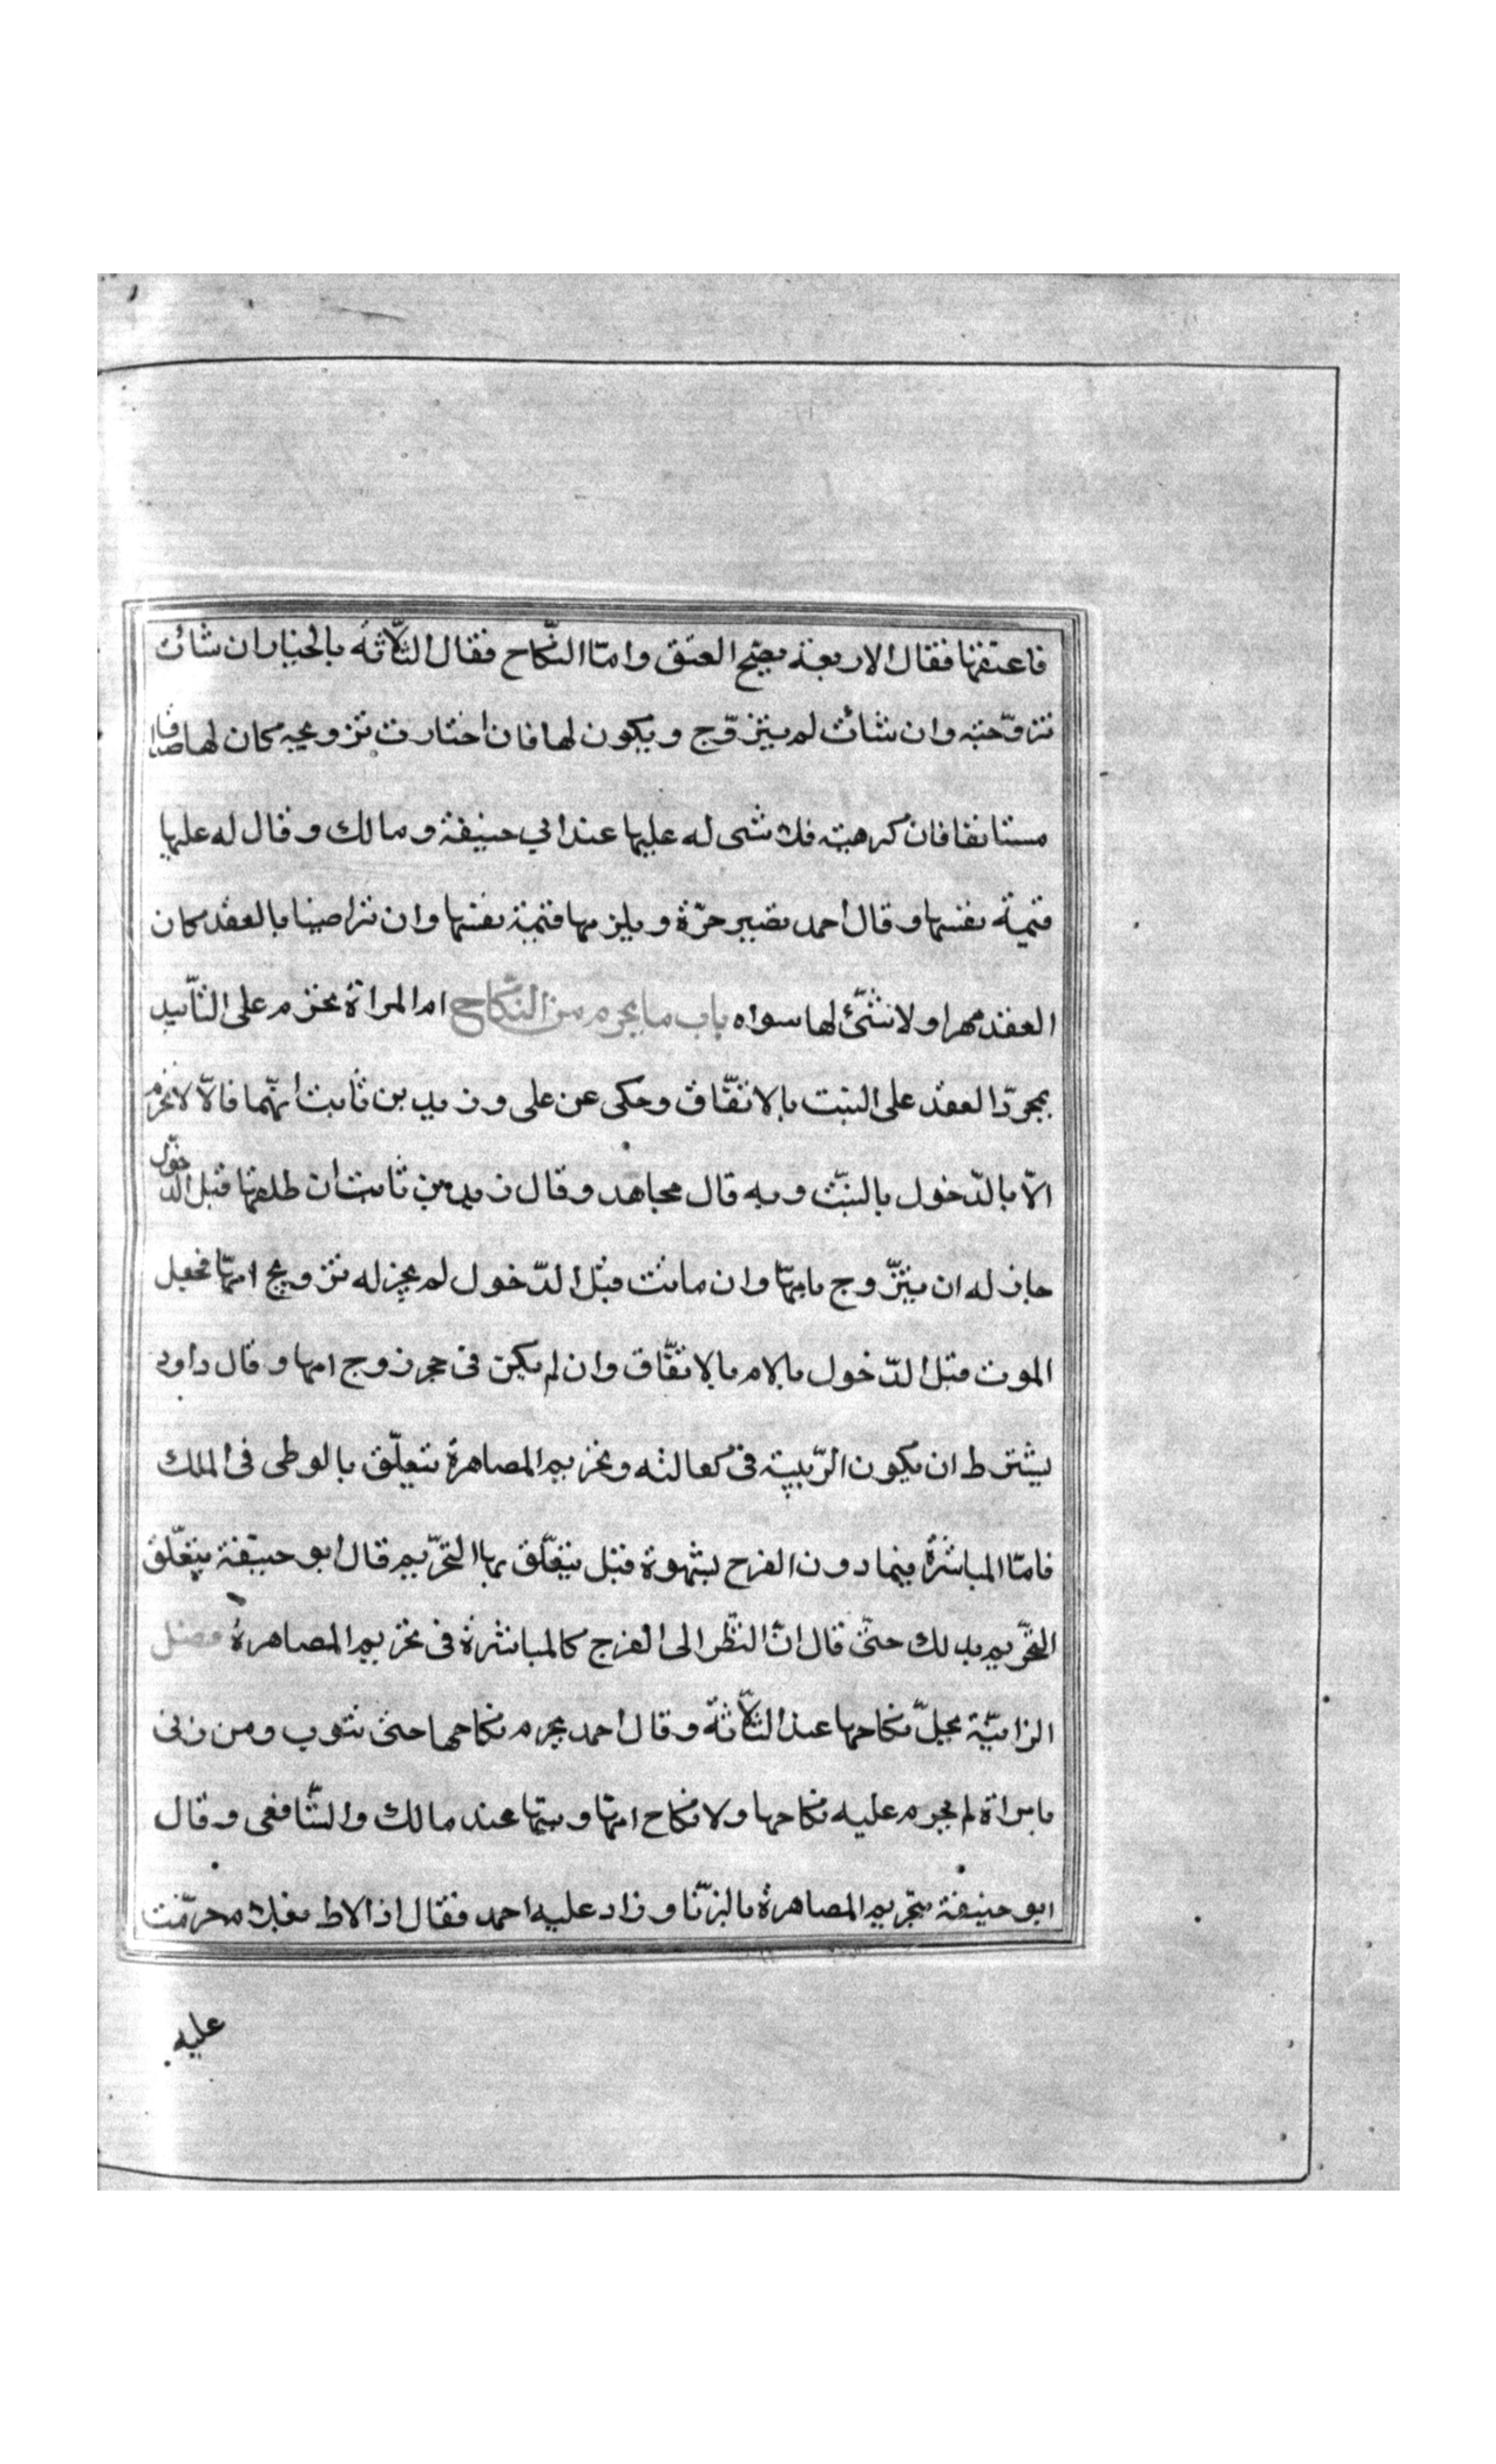 فاعتقها فقال الاربعة يصح العتق وامّا النّكاح فقال الثّلاثة بالخيار ان شائت
تتزوّجته وان شائت لم يتزوّج ويكون لها فان اختارت تزويجه كان لها صداقا
مستانفا فان كرهته فلا شى له عليها عند ابي حنيفة ومالك وقال له عليها
قيمة نفسها وقال احمد تصير حرّة ويلزمها قيمة نفسها وان تراضينا بالعقد كان
العقد مهرا ولا شئ لها سواه باب ما يحرم من النّكاح ام المراة تحرم على التأبيد
بمجرّد العقد على البنت بالاتفّاق وحكى عن على وزيد بن ثابت انهّما قالا لا تحرم
الاّ بالدّخول بالبنت وبه قال مجاهد وقال زيد بن ثابت ان طلقها قبل الدّخول
جاز له ان يتزّوج بامهّا وان ماتت قبل الدّخول لم يجز له تزويج امهّا فجعل
الموت قبل الدّخول بالام بالاتفّاق وان لم يكن فى حجر زوج امها وقال داود
يشترط ان يكون الرّبيبة فى كفالته وتحريم المصاهرة يتعلّق بالوطى فى الملك
فامّا المباشرة فيما دون الفرج بشهوة فبل يتعّلق بها التحرّيم قال ابو حنيفة يتعّلق
التحرّيم بذلك حتىّ قال انّ النظّر الى الفرج كالمباشرة فى تحريم المصاهرة فصل
الزانيّة يحلّ نكاحها عند الثلّاثة وقال احمد يحرم نكاحها حتى تتوب ومن زنى
بامراة لم يحرم عليه نكاحها ولا نكاح امهّا وبنتها عند مالك والشّافعى وقال
ابو حنيفة بتحريم المصاهرة بالزنّا وزاد عليه احمد فقال اذا لاط بغلام حرمّت
عليه